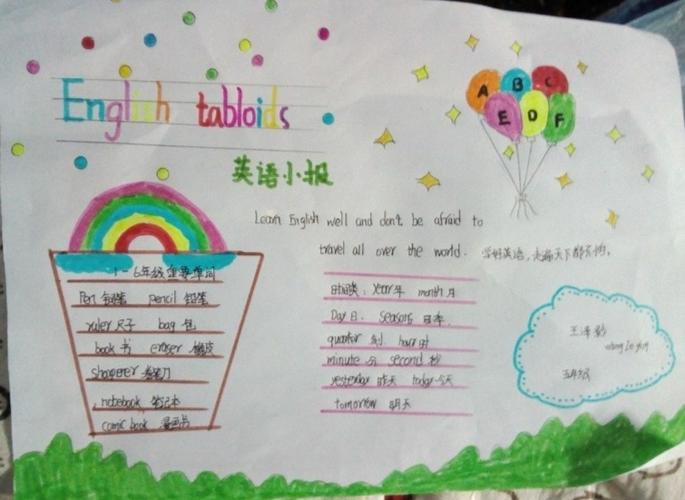 English tabloids
英语小报
A B C
E D F
Learn English well and don't be afraid to
travel all over the world. 学好英语,走遍天下都不怕。
1-6年级重要单词
Pen 钢笔 pencil 铅笔
ruler 尺子 bag 包
book 书 eraser 橡皮
sharpener 卷笔刀
notebook 笔记本
comic book 漫画书
year年 month 月
Day 日. seasons
quarter 刻 hour 时
minute 分 second 秒
yesterday 昨天 today 今天
tomorrow 明天